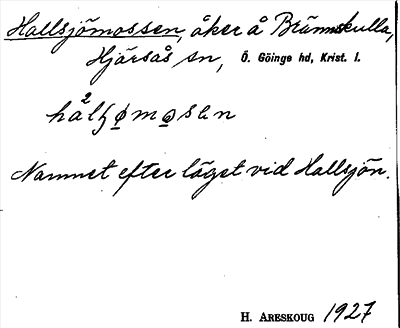 Hallsjömossen, åker å Brännskulla,
Hjärsås sn, Ö. Göinge hd, Krist. l.
Namnet efter läget vid Hallsjön.
H. ARESKOUG 1927